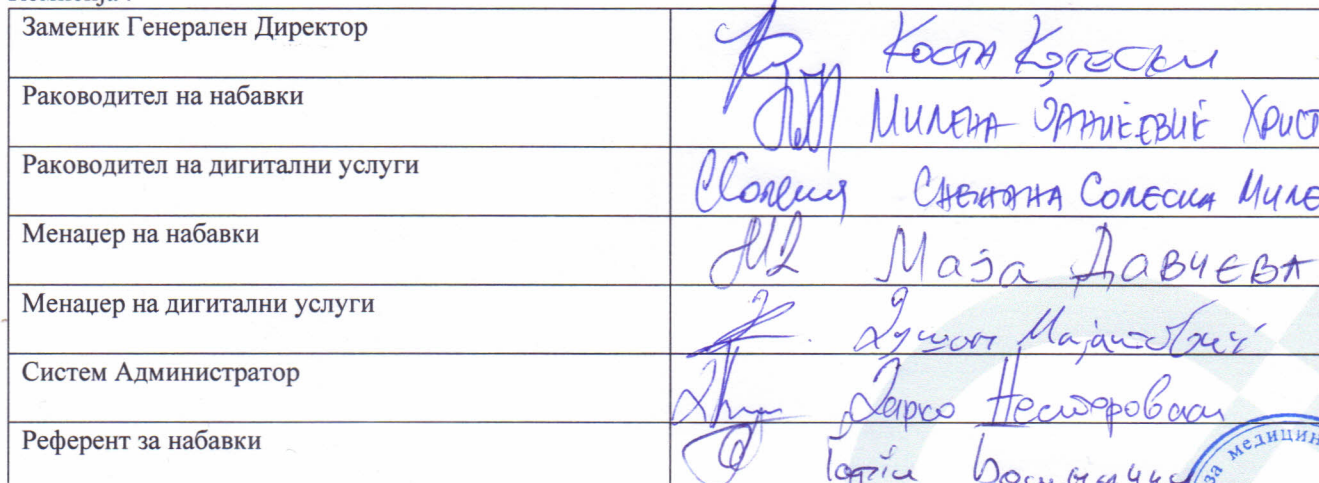 Заменик Генерален Директор Коста Котески
Раководител на набавки Милена Јаниќевиќ Христ
Раководител на дигитални услуги Снежана Солеска Миле
Менаџер на набавки Маја Давчева
Менаџер на дигитални услуги Душан Мајанџовиќ
Систем Администратор Дарко Нестеровски
Референт за набавки
за медицин